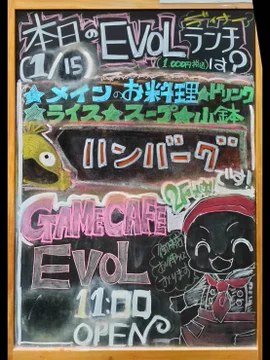 本日のEVOLランチは?
ディナー
(1,000円(税込))
1/15
★メインのお料理★ドリンク
★ライス★スープ★小鉢
ハンバーグ
です!
GAMECAFE
EVOL
11:00
OPEN